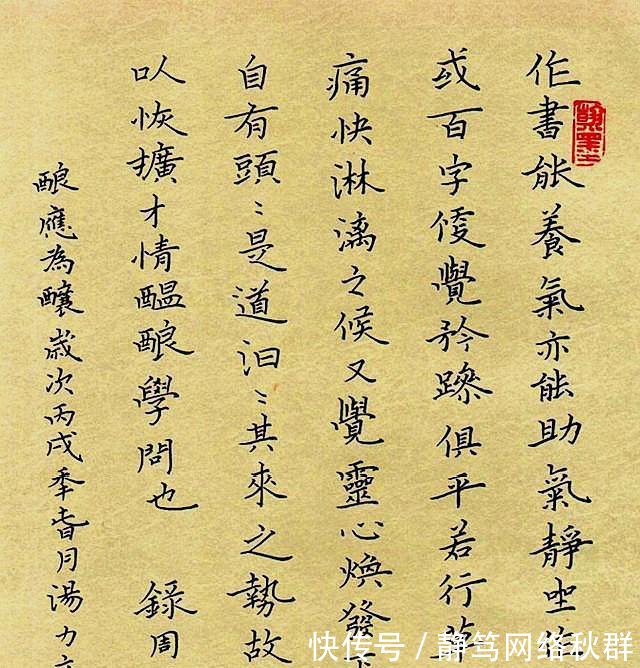 作書能養氣亦能助氣靜坐作
或百字便覺矜躁俱平若行草
痛快淋漓之候又覺靈心煥發下
自有頭〻是道汩〻其來之勢故
以恢擴才情醞酿學問也 錄周
酿應為釀 歲次丙戌年春月湯力
快传号 / 静笃网络秋群